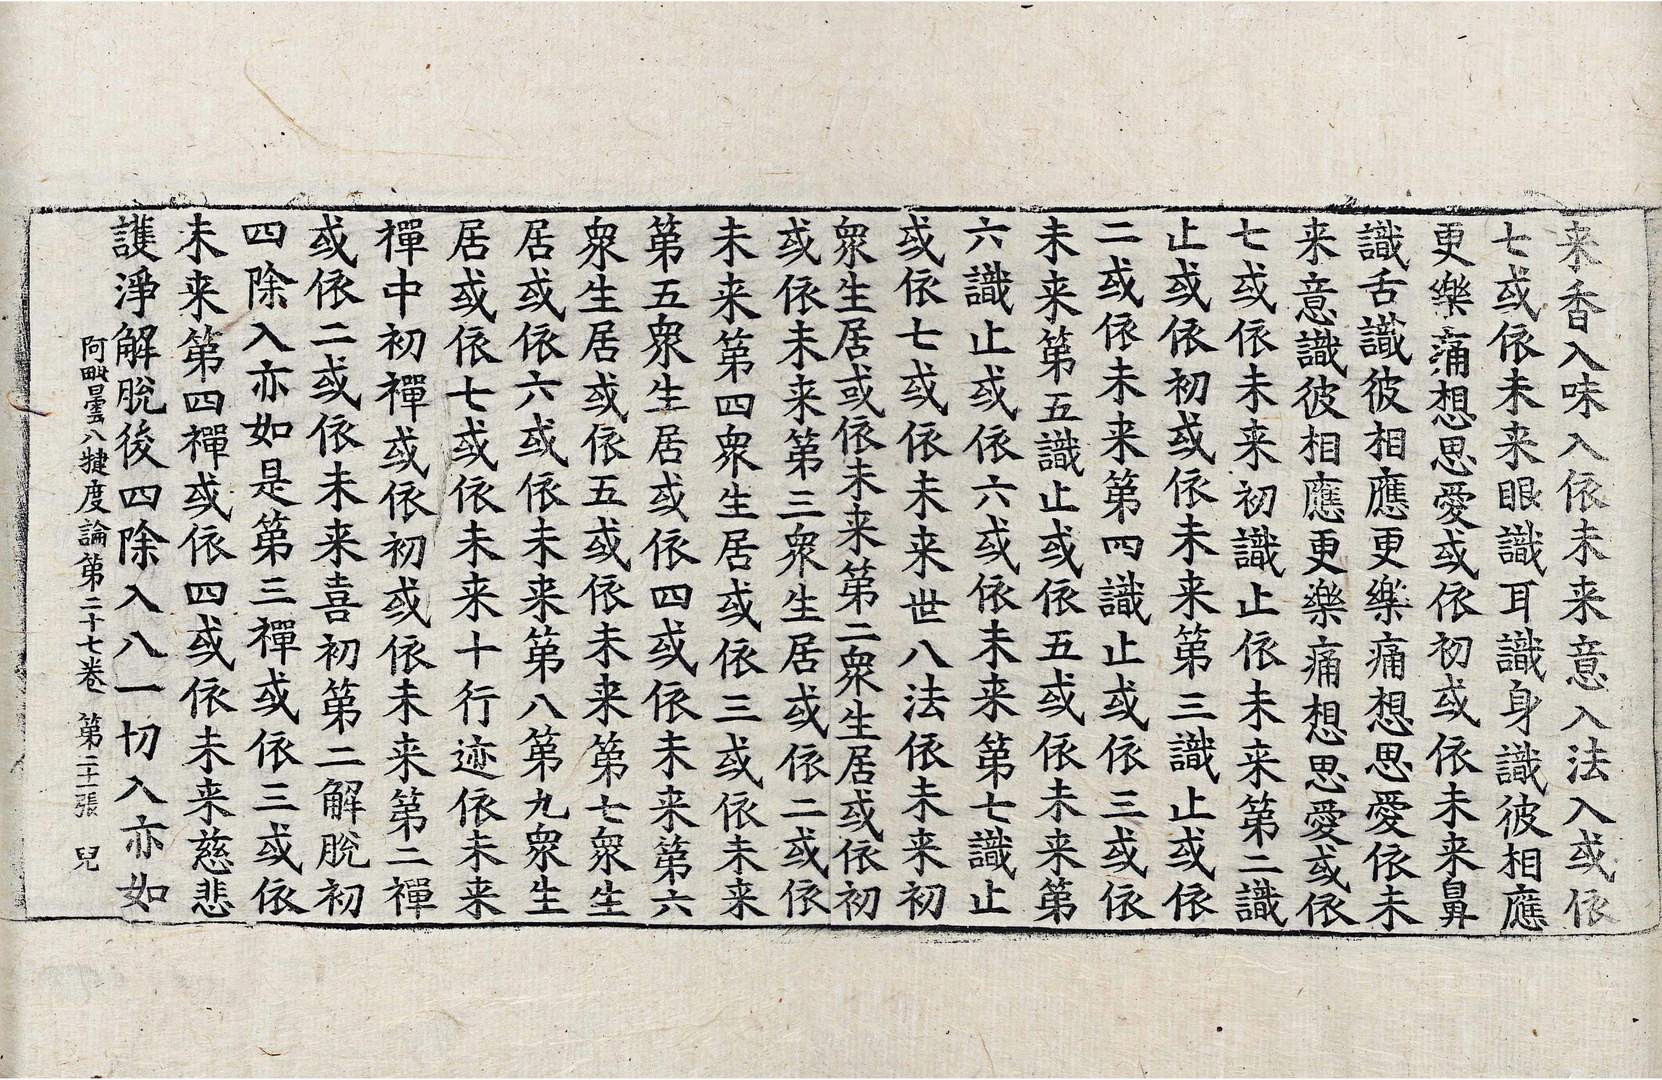 来香入味入依未来意入法入或依
七或依未来眼識耳識身識彼相應
更樂痛想思愛或依初或依未来鼻
識舌識彼相應更樂痛想思愛依未
来意識彼相應更樂痛想思愛或依
七或依未来初識止依未来第二識
止或依初或依未来第三識止或依
二或依未来第四識止或依三或依
未来第五識止或依五或依未来第
六識止或依六或依未来第七識止
或依七或依未来世八法依未来初
衆生居或依未来第二衆生居或依初
或依未来第三衆生居或依二或依
未来第四衆生居或依三或依未来
第五衆生居或依四或依未来第六
衆生居或依五或依未来第七衆生
居或依六或依未来第八第九衆生
居或依七或依未来十行迹依未来
禪中初禪或依初或依未来第二禪
或依二或依未来喜初第二解脫初
四除入亦如是第三禪或依三或依
未来第四禪或依四或依未来慈悲
護淨解脫後四除入八一切入亦如
阿毗曇八揵度論第二十七卷 第二十二張 兒